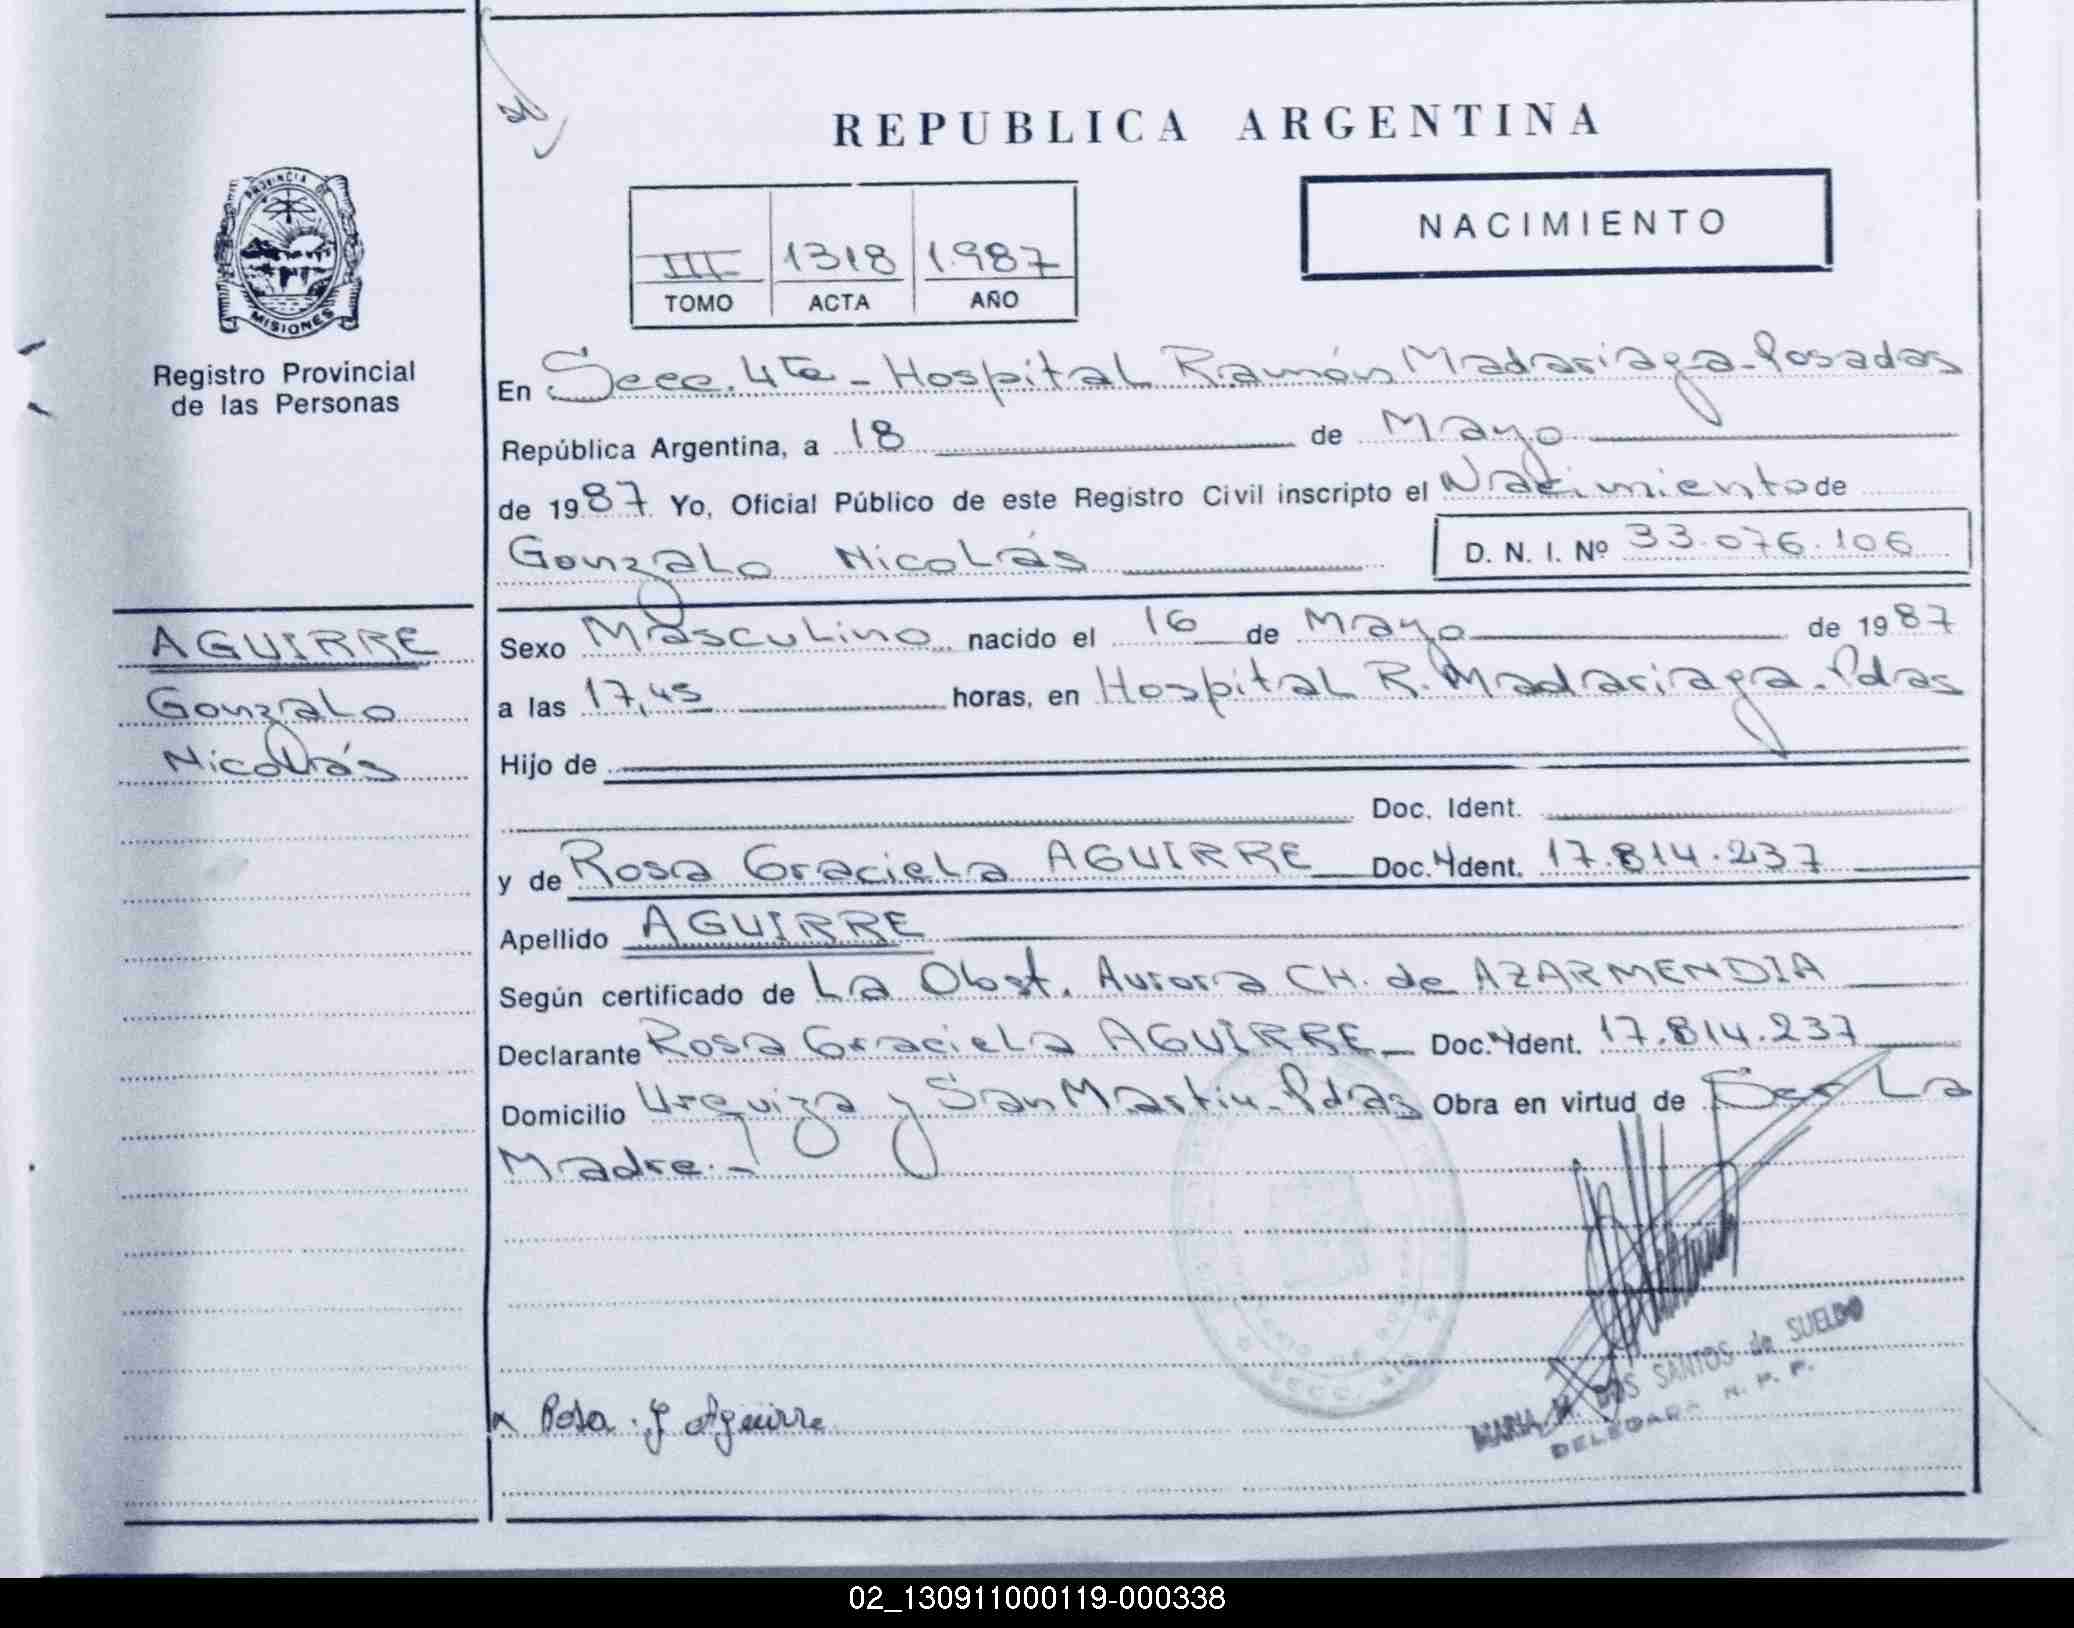 REPUBLICA ARGENTINA
NACIMIENTO
III 1318 1.987
TOMO ACTA AÑO
PROVINCIA DE
MISIONES
Registro Provincial
de las Personas
En Secc. 4ta - Hospital Ramón Madariaga - Posadas
República Argentina, a 18 de Mayo
de 1987 Yo, Oficial Público de este Registro Civil inscripto el Nacimiento de
Gonzalo Nicolás D. N. I. Nº 33.076.106
AGUIRRE
Gonzalo
Nicolás
Sexo Masculino nacido el 16 de Mayo de 1987
a las 17,45 horas, en Hospital R. Madariaga. Pdas
Hijo de
Doc. Ident.
y de Rosa Graciela AGUIRRE Doc. Ident. 17.814.237
Apellido AGUIRRE
Según certificado de La Obst. Aurora CH. de AZARMENDIA
Declarante Rosa Graciela AGUIRRE Doc. Ident. 17.814.237
Domicilio Urquiza y San Martin - Pdas Obra en virtud de Ser La
Madre. -
Rosa. G Aguirre
MARIA M. DOS SANTOS de SUELDO
DELEGADA R. P. P.
02_130911000119-000338